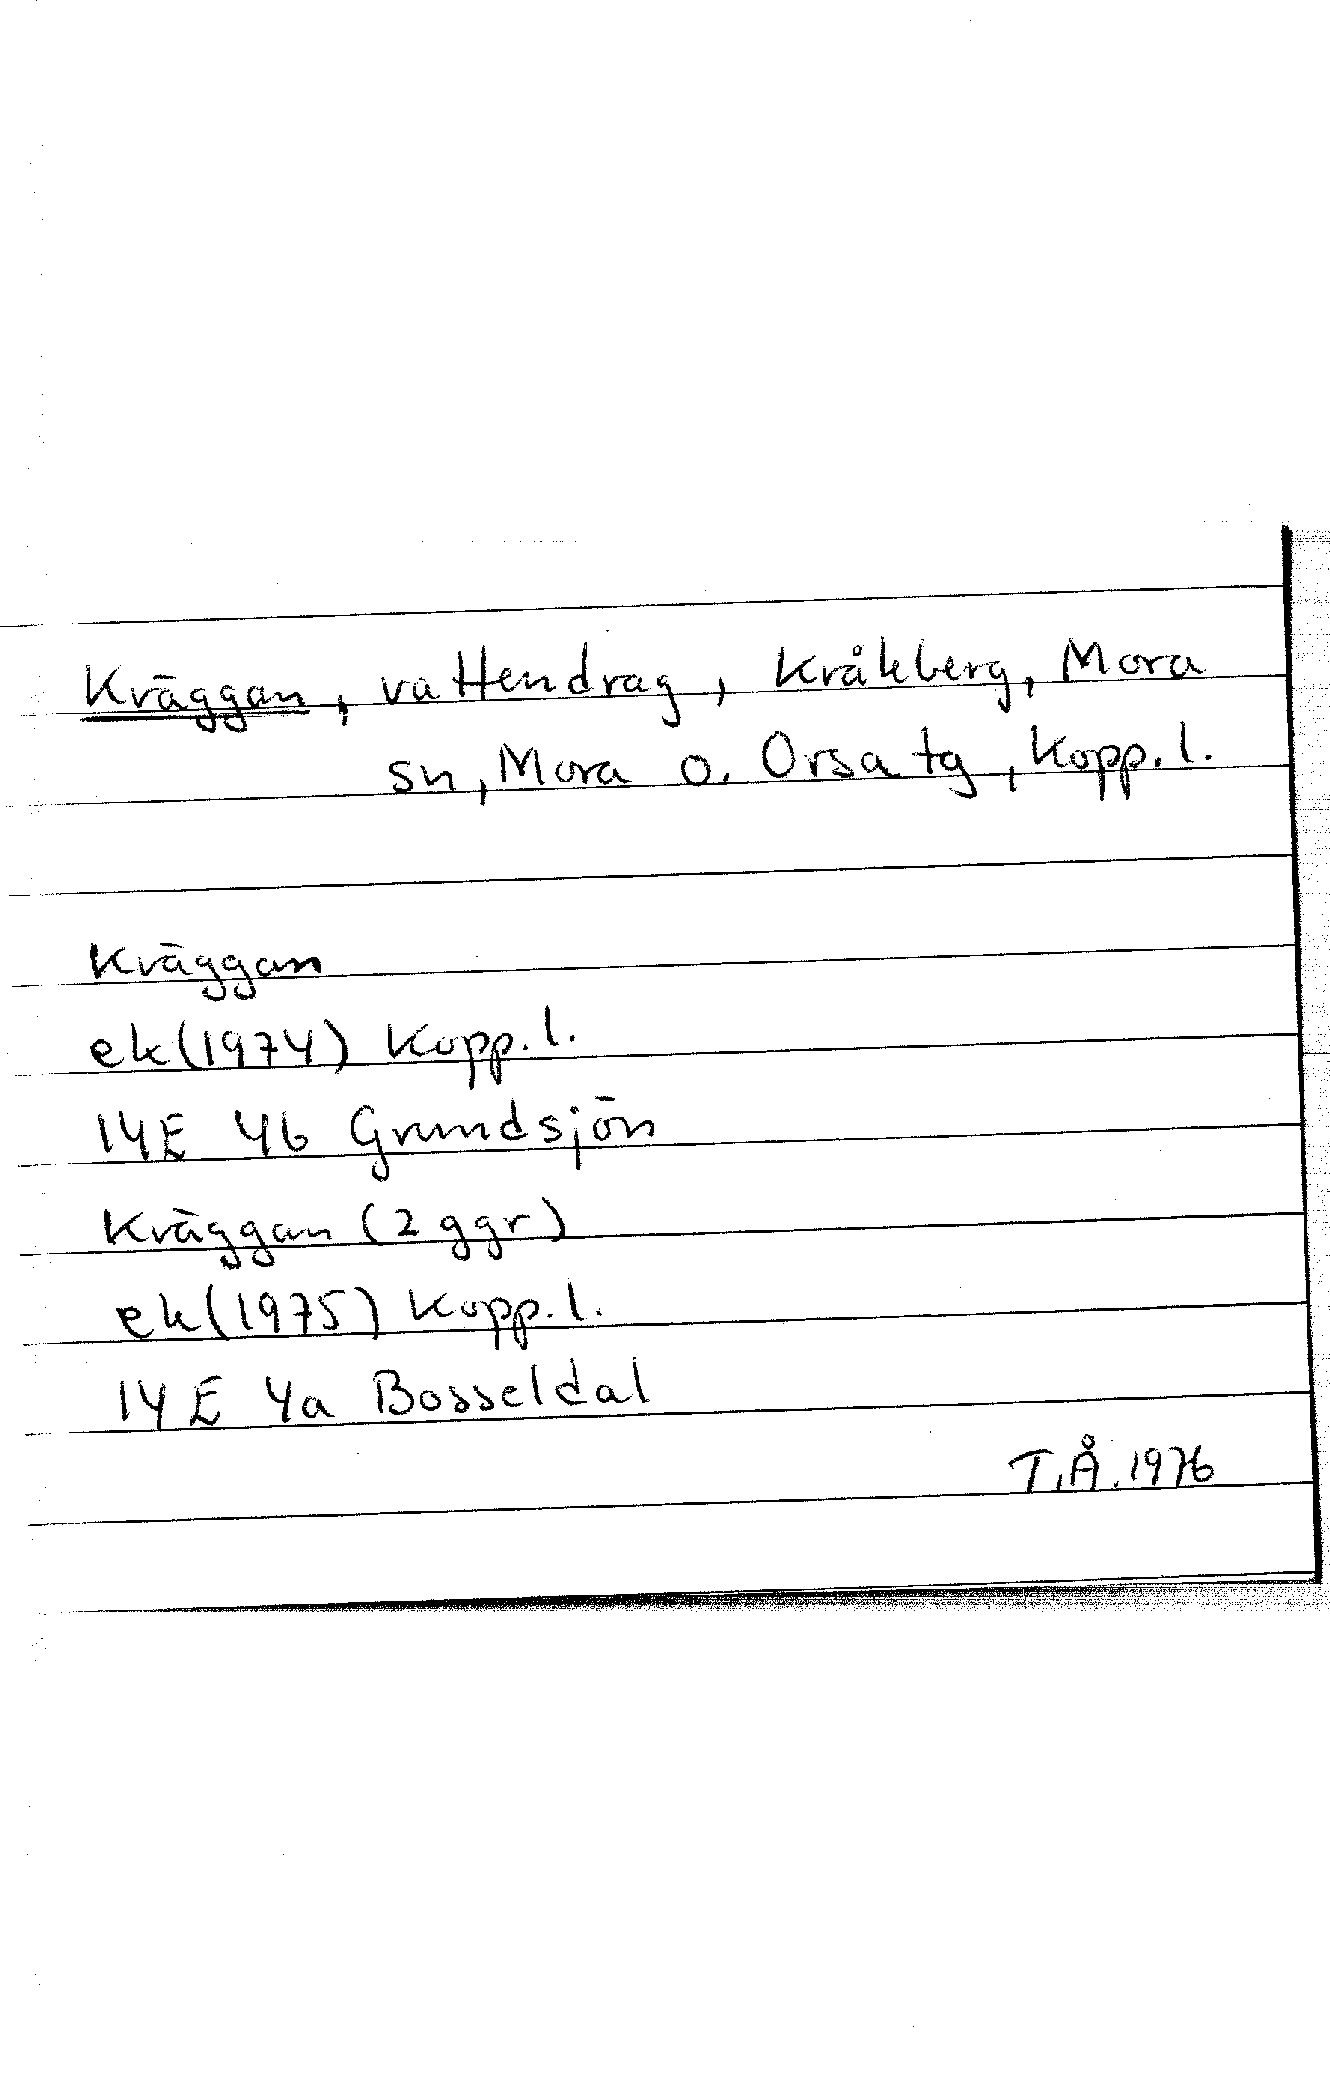 Kräggan, vattendrag, Kråkberg, Mora
sn, Mora o. Orsa tg, Kopp. l.
Kräggan
ek (1974) Kopp. l.
14E 4b Grundsjön
Kräggan (2 ggr)
ek (1975) Kopp. l.
14E 4a Bosseldal
T.Å. 1976